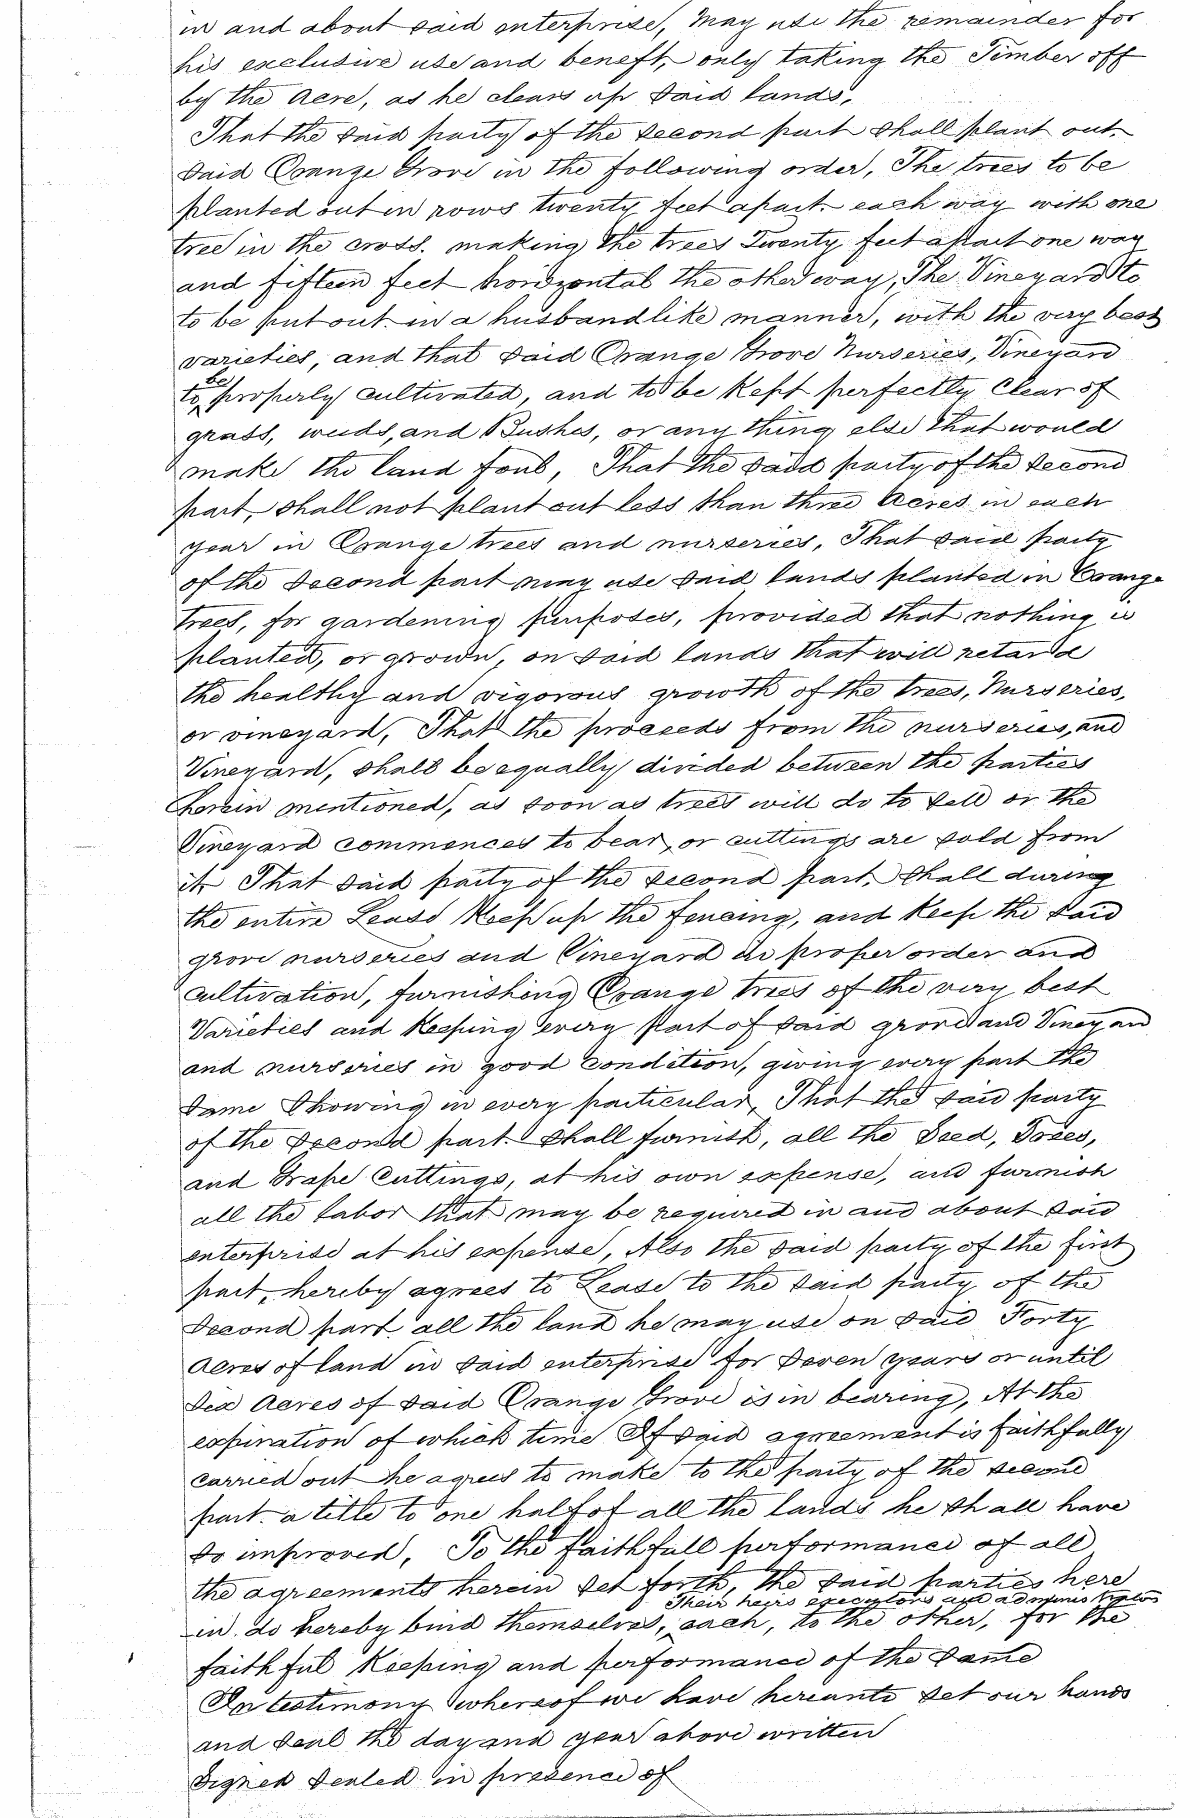 in and about said enterprise, may use the remainder for
his exclusive use and beneft, only taking the Timber off
by the Acre, as he clears up said lands,
That the said party of the second part shall plant out
said Orange Grove in the following order, The trees to be
planted out in rows twenty feet apart each way with one
tree in the cross. making the trees Twenty feet apart one way
and fifteen feet horizontal the other way, The Vineyard to
to be put out in a husbandlike manner, with the very best
varieties, and that said Orange Grove Nurseries, Vineyard
to be properly cultivated, and to be kept perfectly clear of
grass, weeds, and Bushes, or any thing else that would
make the land foul, That the said party of the second
part, shall not plant out less than three Acres in each
year in Orange trees and nurseries, That said party
of the second part may use said lands planted in Orange
trees, for gardening purposes, provided that nothing is
planted, or grown, on said lands that will retard
the healthy and vigorous growth of the trees, Nurseries,
or vineyard, That the proceeds from the nurseries, and
Vineyard, shall be equally divided between the parties
herein mentioned, as soon as trees will do to sell or the
Vineyard commences to bear, or cuttings are sold from
it. That said party of the second part, shall during
the entire Lease Keep up the fencing, and keep the said
grove nurseries and Vineyard in proper order and
cultivation, furnishing Orange trees of the very best
Varieties and Keeping every part of said grove and Vineyard
and nurseries in good condition, giving every part the
same showing in every particular, That the said party
of the second part. shall furnish, all the Seed, Trees,
and Grape Cuttings, at his own expense, and furnish
all the labor that may be required in and about said
enterprise at his expense, Also the said party of the first
part, hereby agrees to Lease to the said party of the
second part all the land he may use on said Forty
Acres of land in said enterprise for seven years or until
six Acres of said Orange Grove is in bearing, At the
expiration of which time If said agreement is faithfully
carried out he agrees to make to the party of the second
part. a title to one half of all the lands he shall have
so improved, To the faithfull performance of all
the agreements herein set forth, the said parties here
Their heirs executors and administrators
in do hereby bind themselves, each, to the other, for the
faithful Keeping and performance of the same
In testimony whereof we have hereunto set our hands
and seal the day and year above written
Signed Sealed in presence of